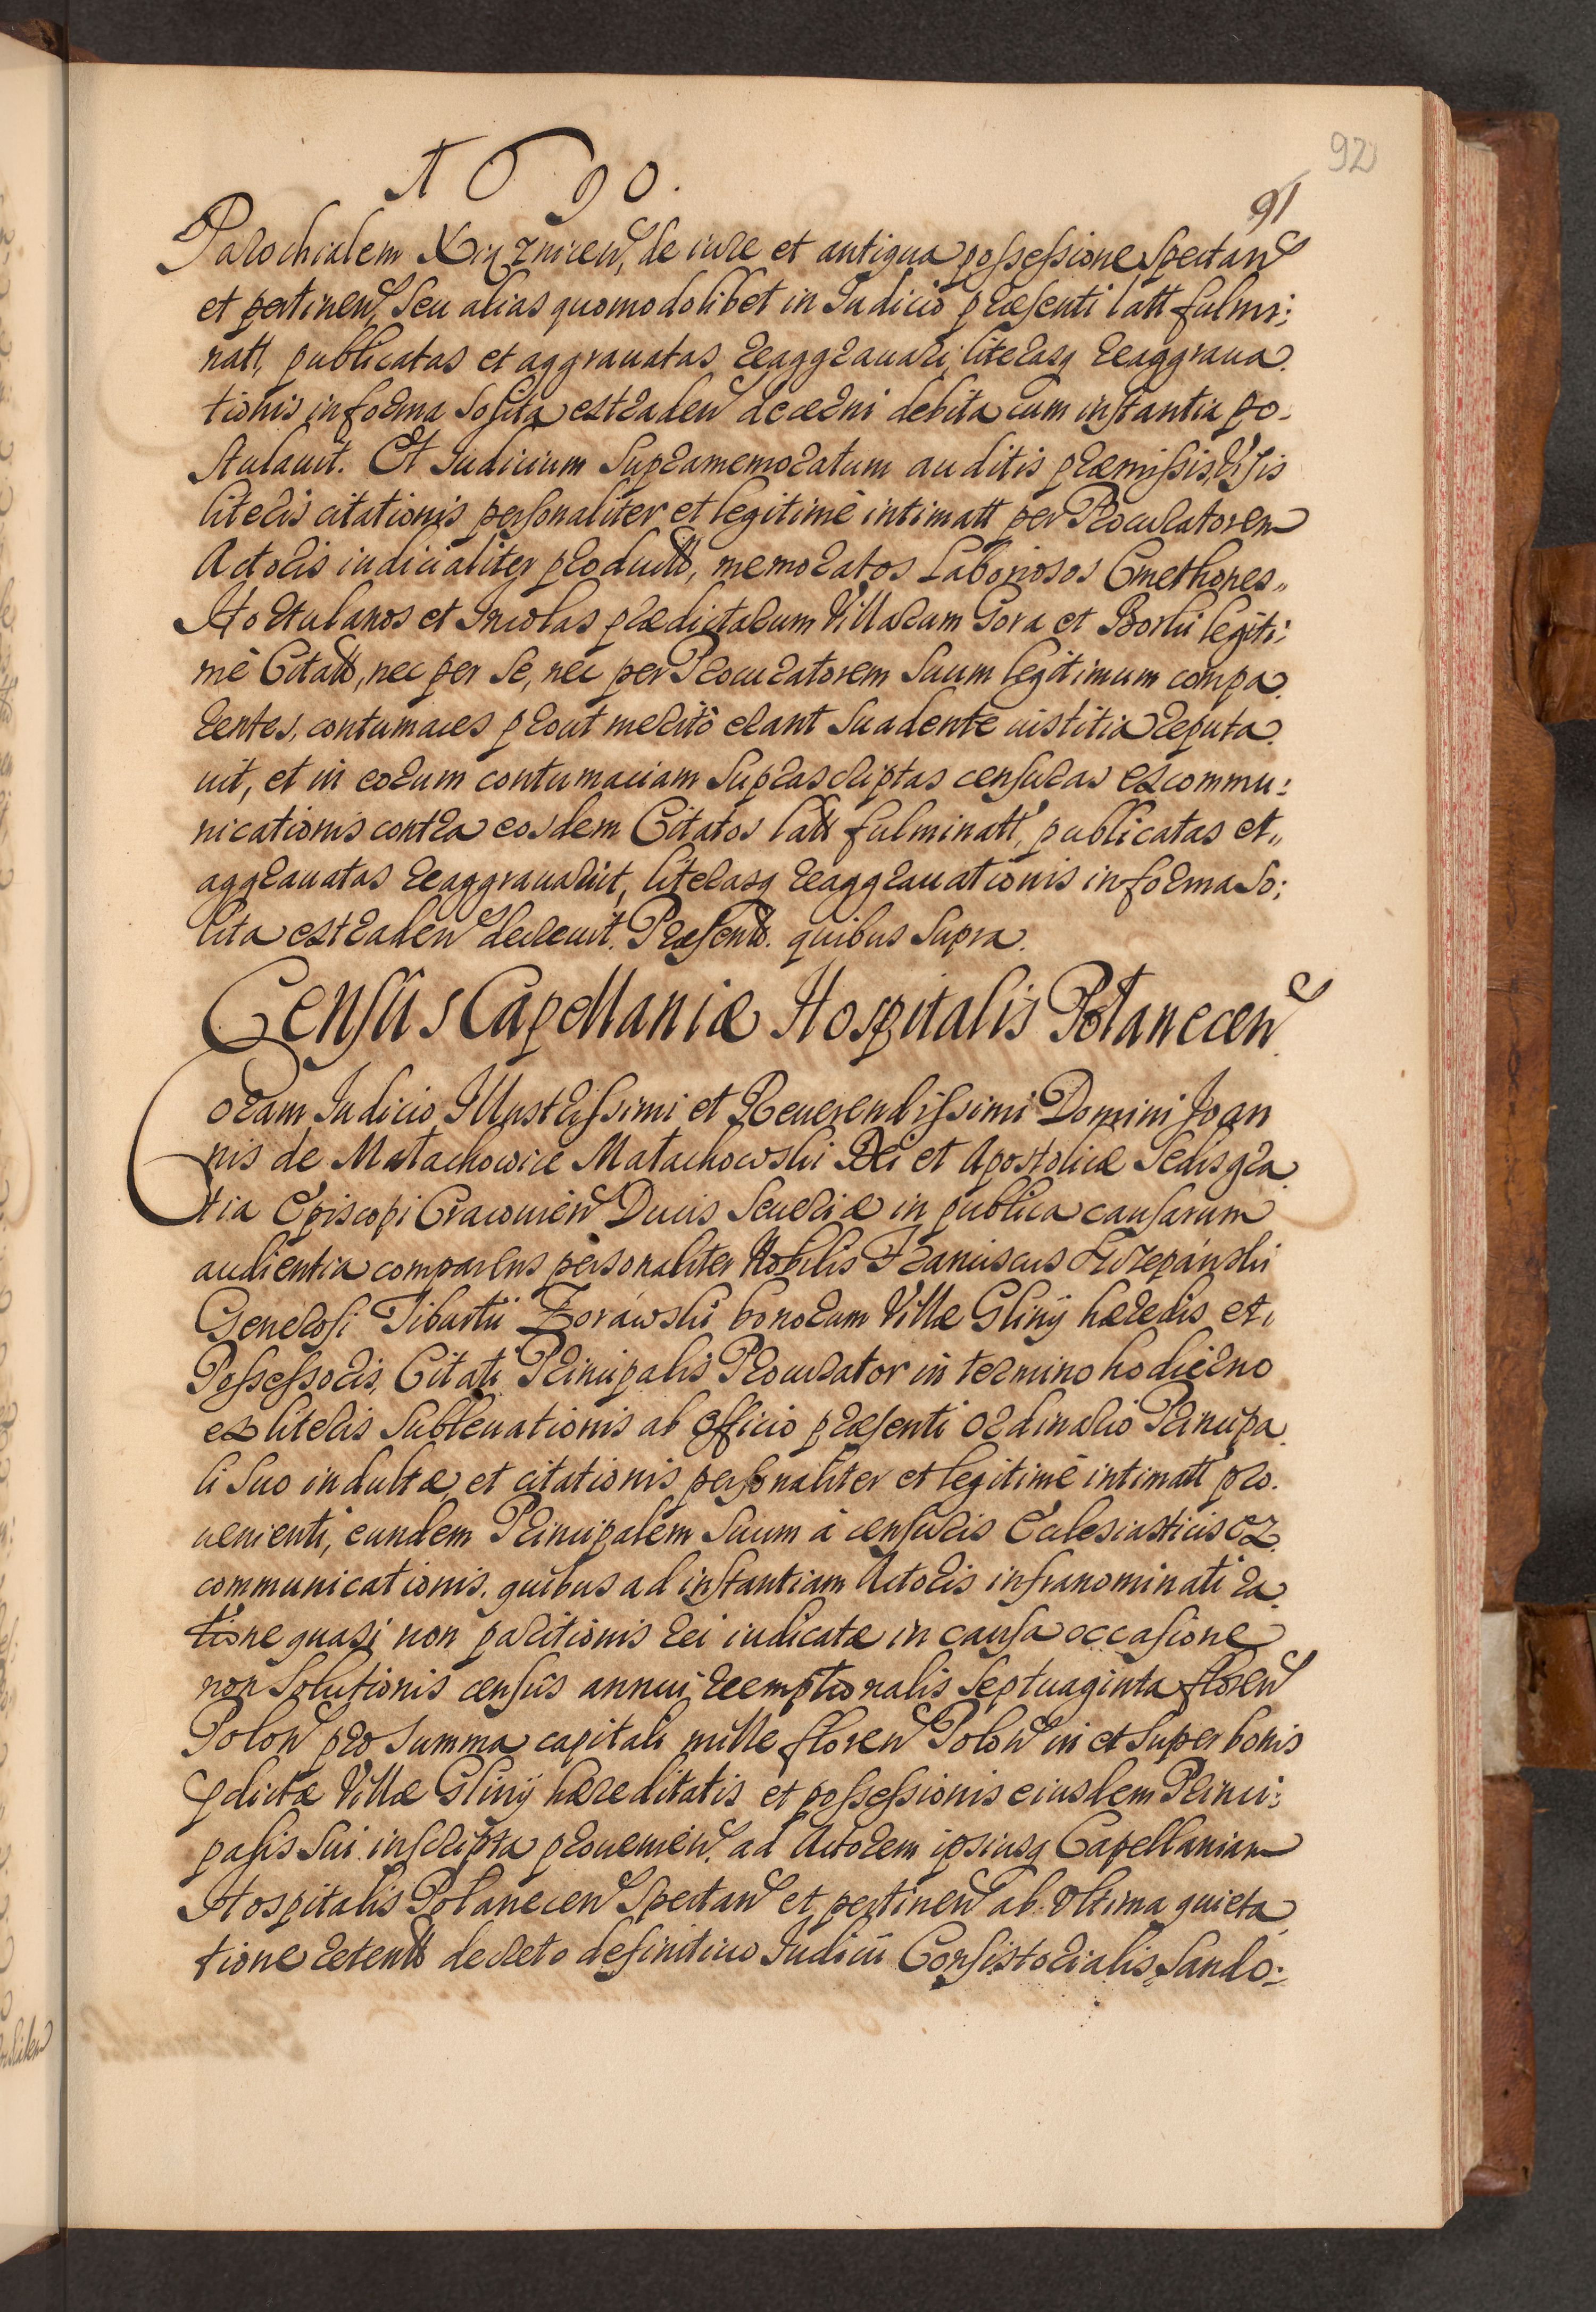 92
A 6 9 0.
91
Parochialem de iure et antiqua possessione Spectan
et pertinen, Seu alias quomodolibet in Iudicio præsenti latt fulmi:
natt, publicatas et aggrauatas reaggrauari, literasq reaggraua
tionis in forma Solita extraden decerni debita cum instantia po:
stulauit. Et Iudicium Supramemoratum auditis præmissis, visis
literis citationis personaliter et legitimè intimatt per Procuratorem
Actoris iudicialiter productt, memoratos Laboriosos Cmethones„
Hortulanos et Incolas prædictarum Villarum Gora et Borki legiti:
mè Citatt, nec per Se, nec per Procuratorem Suum legitimum compa
rentes, contumaces prout meritò erant Suadente iustitia reputa
uit, et in eorum contumaciam Suprascriptas censuras excommu:
nicationis contra eosdem Citatos latt fulminatt, publicatas et„
aggrauatas reaggrauauit, literasq reaggrauationis in forma So:
lita extraden decreuit. Præsentt. quibus Supra.
Census Capellaniæ Hospitalis Połanecen
Coram Iudicio Illustrissimi et Reuerendissimi Domini Joan
nis de Małachowice Małachowski Dei et Apostolicæ Sedis gra
tia Episcopi Cracouien Ducis Seueriæ in publica causarum
audientia comparens personaliter Nobilis Franciscus
Generosi Tiburtii Zorawski bonorum Villæ Gliny hæredis et„
Possessoris, Citati Principalis Procurator in termino hodierno
ex literis Subleuationis ab Officio præsenti ordinario Principa
li Suo indultæ, et citationis personaliter et legitimè intimatt pro.
uenienti, eundem Principalem Suum à censuris Ecclesiasticis ex
communicationis, quibus ad instantiam Actoris infranominati ra
tione quasi non paritionis rei iudicatæ in causa occasione
non Solutionis census annui reemptionalis Septuaginta floren
Polon pro Summa capitali mille floren Polon in et Super bonis
pdictæ Villæ Gliny hæreditatis et possessionis eiusdem Princi:
palis Sui inscripta prouenien. ad Actorem ipsiusq Capellaniam
Hospitalis Połanecen Spectan et pertinen ab vltima quieta
tione retentt decreto definitiuo Iudicii Consistorialis Sando: